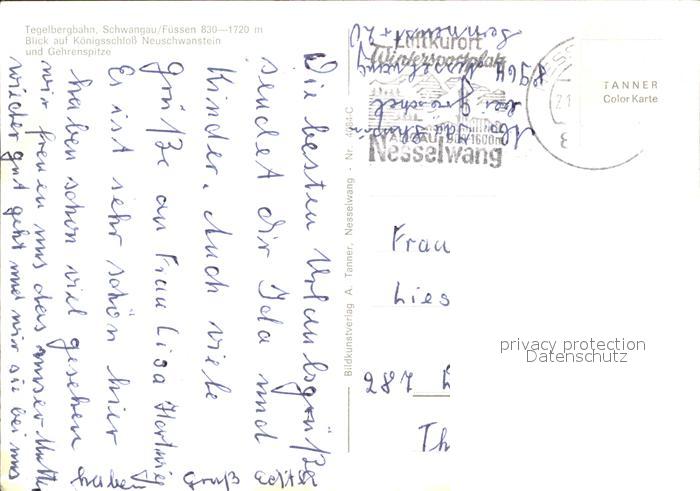 Tegelbergbahn, Schwangau/Füssen 830—1720 m
Blick auf Königsschloß Neuschwanstein
und Gehrenspitze
Die besten Urlaubsgrüße
sendet dir Ida und
Kinder. Auch viele
Grüße an Frau Lisa
Es ist sehr schön hier
haben schon viel gesehen
wir freuen uns das unser Mutter
wieder gut geht und wir sie bei uns
haben Gruß
Bildkunstverlag A. Tanner, Nesselwang - Nr.
Luftkurort
Wintersportplatz
Nesselwang
Abs. Ida
bei
8964 Nesselwang
TANNER
Color Karte
Frau
Lies
287
Th
privacy protection
Datenschutz